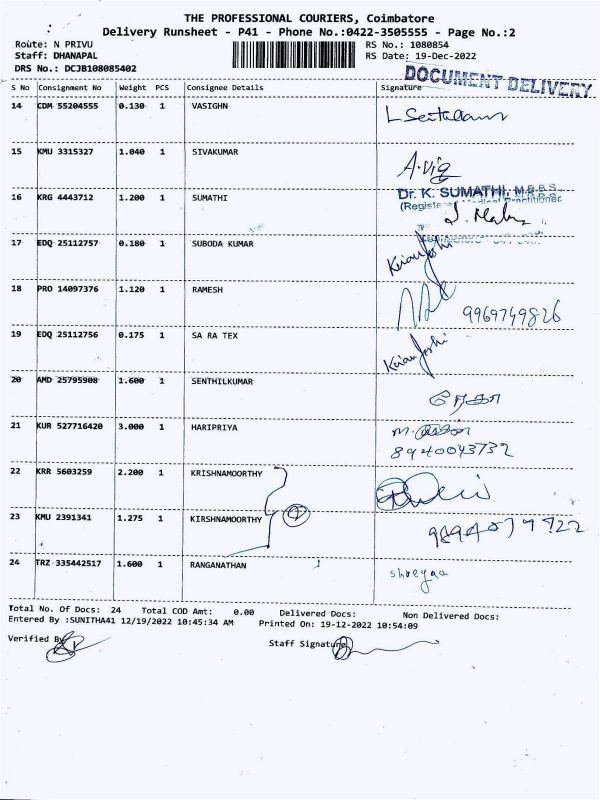 THE PROFESSIONAL COURIERS, Coimbatore
Delivery Runsheet - P41 - Phone No.:0422-3505555 - Page No.:2
Route: N PRIVU RS No.: 1080854
Staff: DHANAPAL RS Date: 19-Dec-2022
DRS No.: DCJB108085402
DOCUMENT DELIVERY
S No Consignment No Weight PCS Consignee Details Signature
14 CDM 55204555 0.130 1 VASIGHN
15 KMU 3315327 1.040 1 SIVAKUMAR
16 KRG 4443712 1.200 1 SUMATHI Dr. K. SUMATHI, M.B.B.S.,
17 EDQ 25112757 0.180 1 SUBODA KUMAR Kiran Joshi
18 PRO 14097376 1.120 1 RAMESH 9969749826
19 EDQ 25112756 0.175 1 SA RA TEX Kiran Joshi
20 AMD 25795908 1.600 1 SENTHILKUMAR
21 KUR 527716420 3.000 1 HARIPRIYA
8940043732
22 KRR 5603259 2.200 1 KRISHNAMOORTHY
23 KMU 2391341 1.275 1 KIRSHNAMOORTHY
24 TRZ 335442517 1.600 1 RANGANATHAN shreyaa
Total No. Of Docs: 24 Total COD Amt: 0.00 Delivered Docs: Non Delivered Docs:
Entered By :SUNITHA41 12/19/2022 10:45:34 AM Printed On: 19-12-2022 10:54:09
Verified By Staff Signature